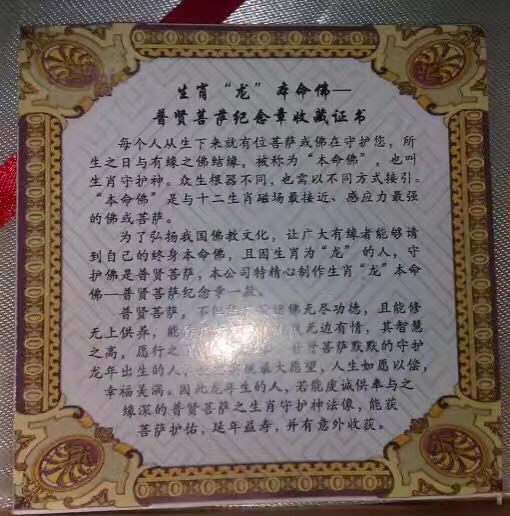 生肖“龙”本命佛—
普贤菩萨纪念章收藏证书
每个人从生下来就有位菩萨或佛在守护您，所
生之日与有缘之佛结缘，被称为“本命佛”，也叫
生肖守护神。众生根器不同，也需以不同方式接引。
“本命佛”是与十二生肖磁场最接近、感应力最强
的佛或菩萨。
为了弘扬我国佛教文化，让广大有缘者能够请
到自己的终身本命佛，且因生肖为“龙”的人，守
护佛是普贤菩萨，本公司特精心制作生肖“龙”本命
佛—普贤菩萨纪念章一款。
普贤菩萨，不但 佛无尽功德，且能修
无上供养，能作 无边有情，其智慧
之高，愿行之 普贤菩萨默默的守护
龙年出生的人， 最大愿望，人生如愿以偿，
幸福美满。因此龙年生的人，若能虔诚供奉与之
缘深的普贤菩萨之生肖守护神法像，能获
菩萨护佑，延年益寿，并有意外收获。